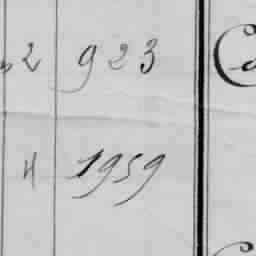 2 923 C
" 1959